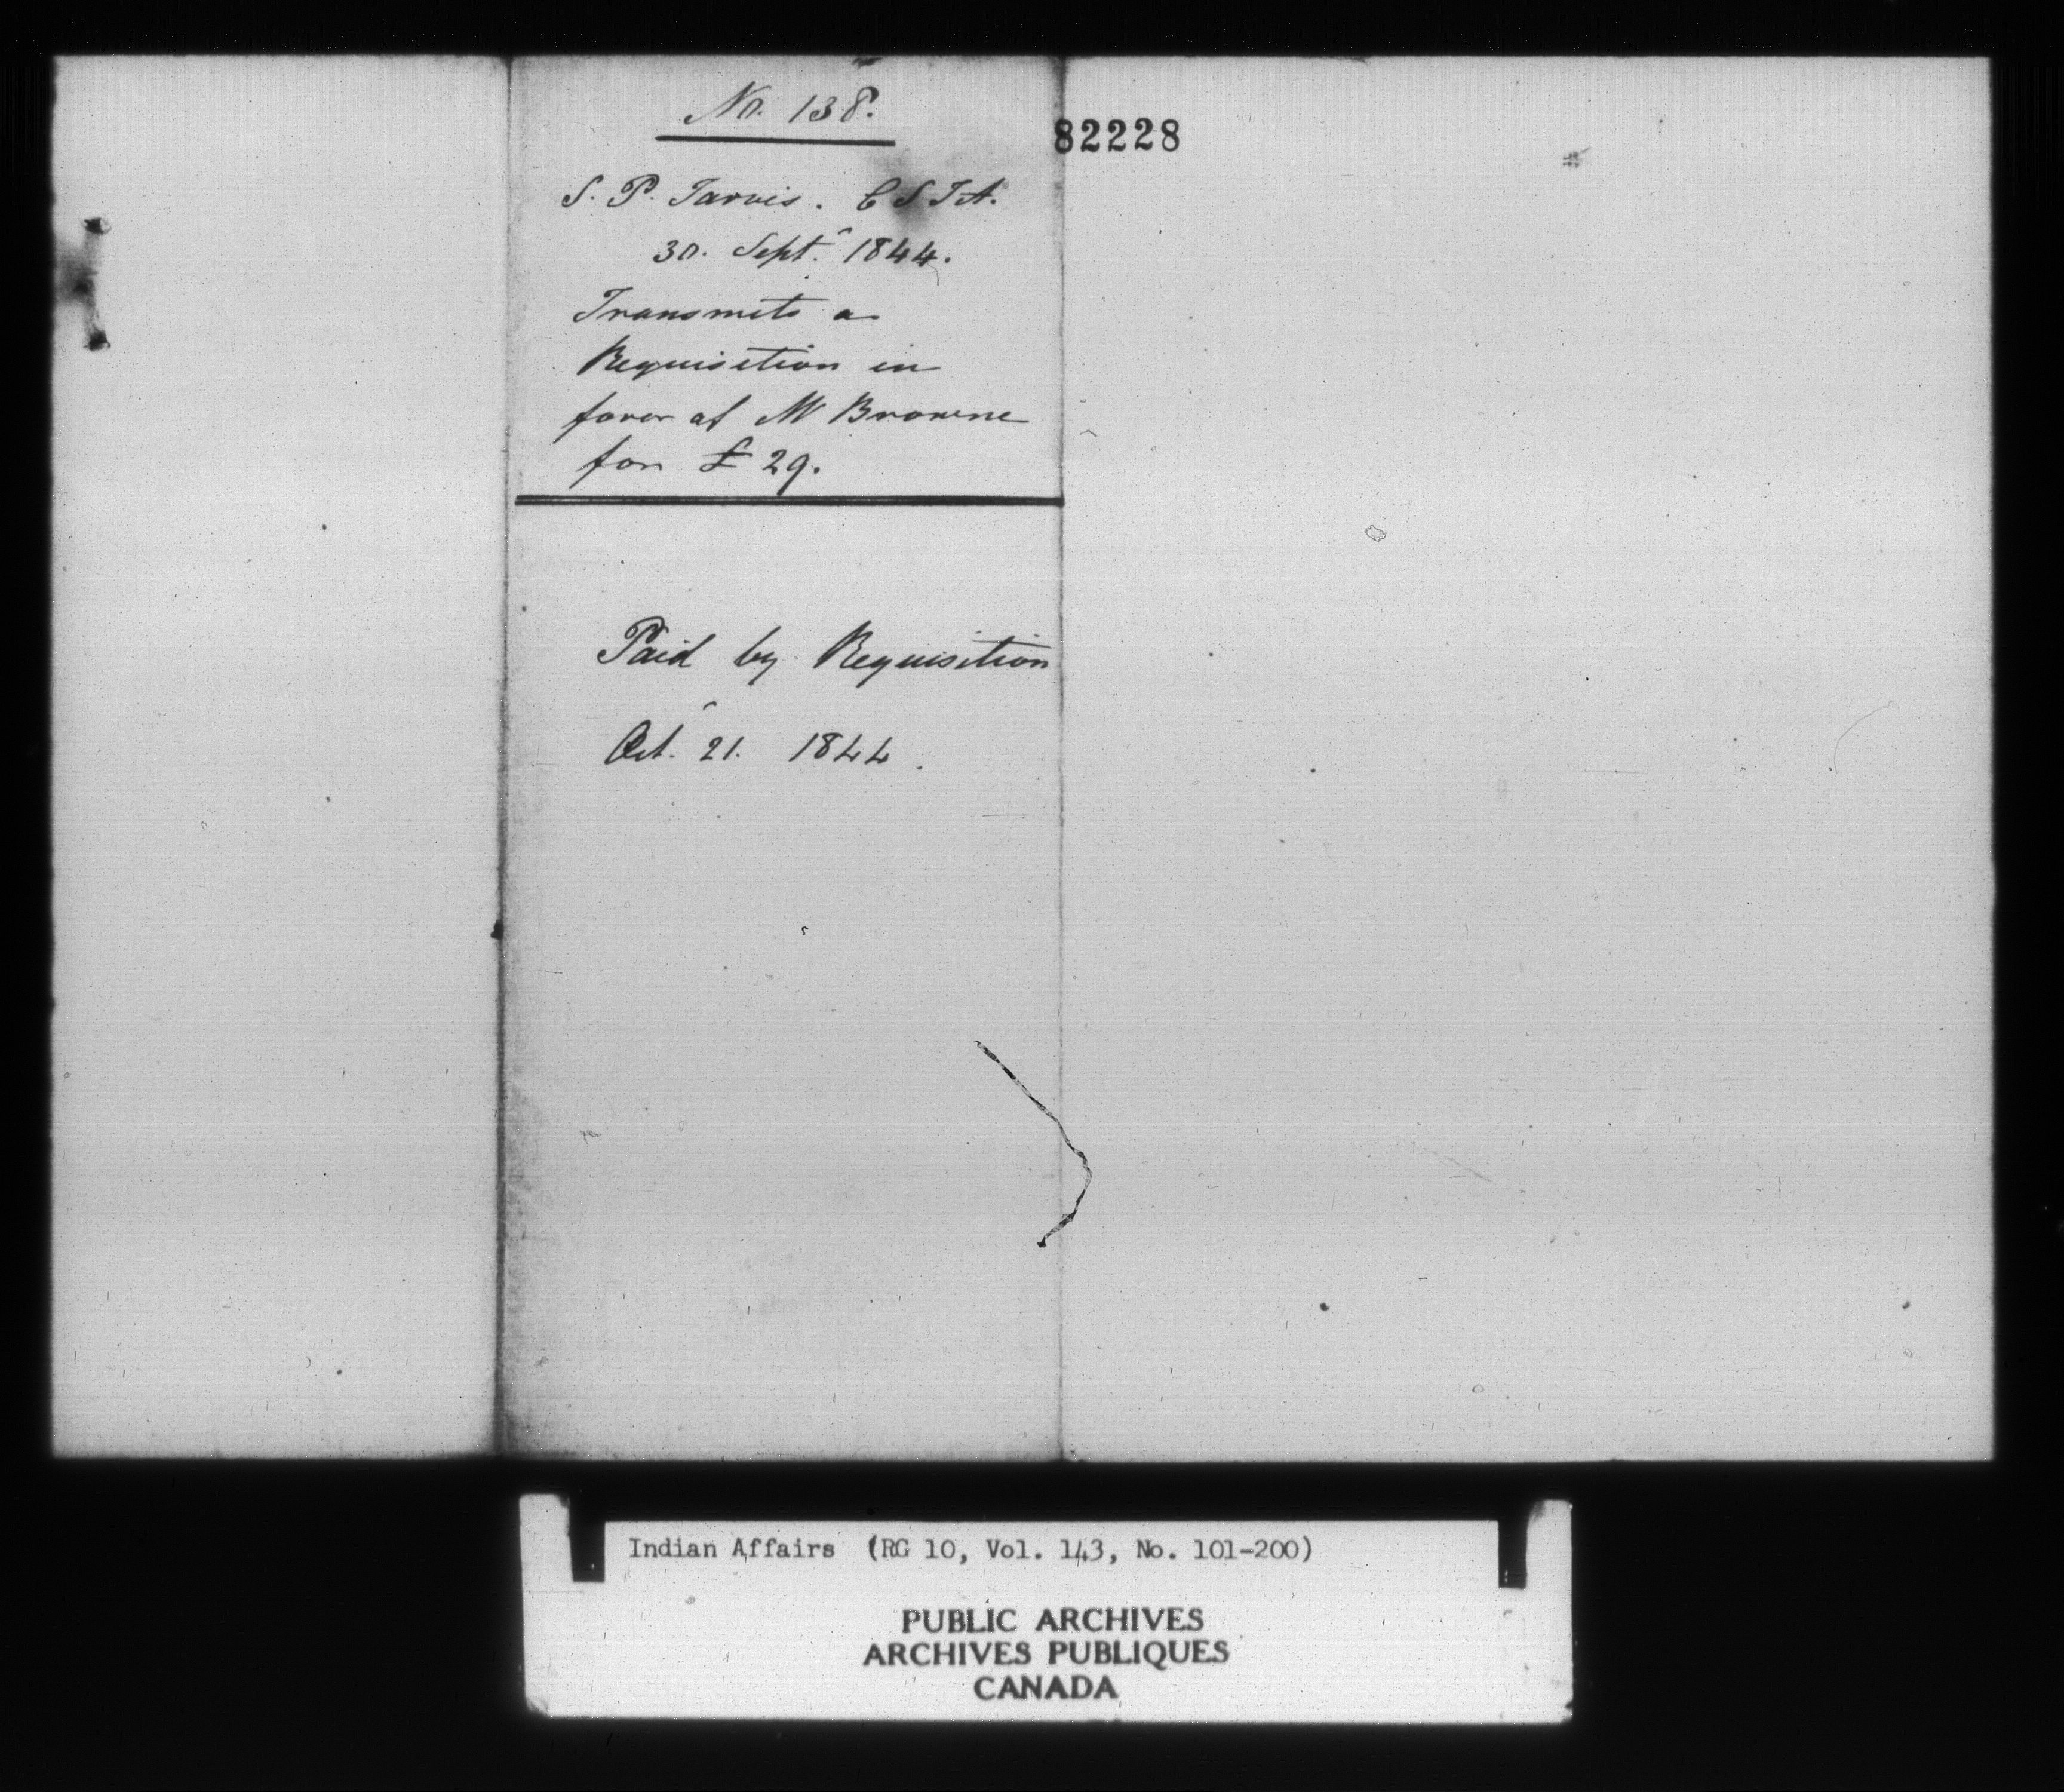 No. 138.
82228
S. P. Jarvis. C S I A.
30. Sept. 1844.
Transmits a
Requisition in
favor of M Browne
for £29.
Paid by Requisition
Oct. 21. 1844.
Indian Affairs (RG 10, Vol. 143, No. 101-200)
PUBLIC ARCHIVES
ARCHIVES PUBLIQUES
CANADA